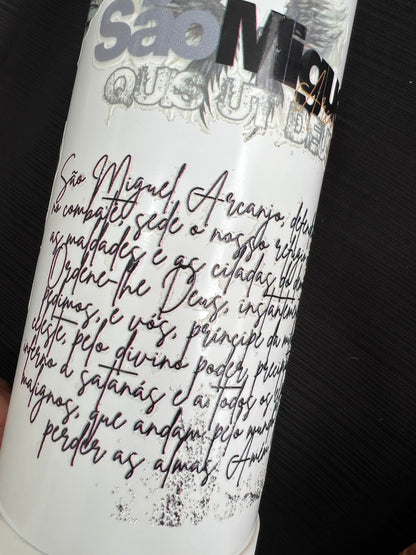 São Migu
QUIS UT DE
São Miguel Arcanjo, defen
no combate, sede o nosso refúgi
as maldades e as ciladas do de
Ordene-lhe Deus, instantem
pedimos, e vós, príncipe da mi
celeste, pelo divino poder, preci
inferno a satanás e a todos os
malignos, que andam pelo mundo
perder as almas. Amém